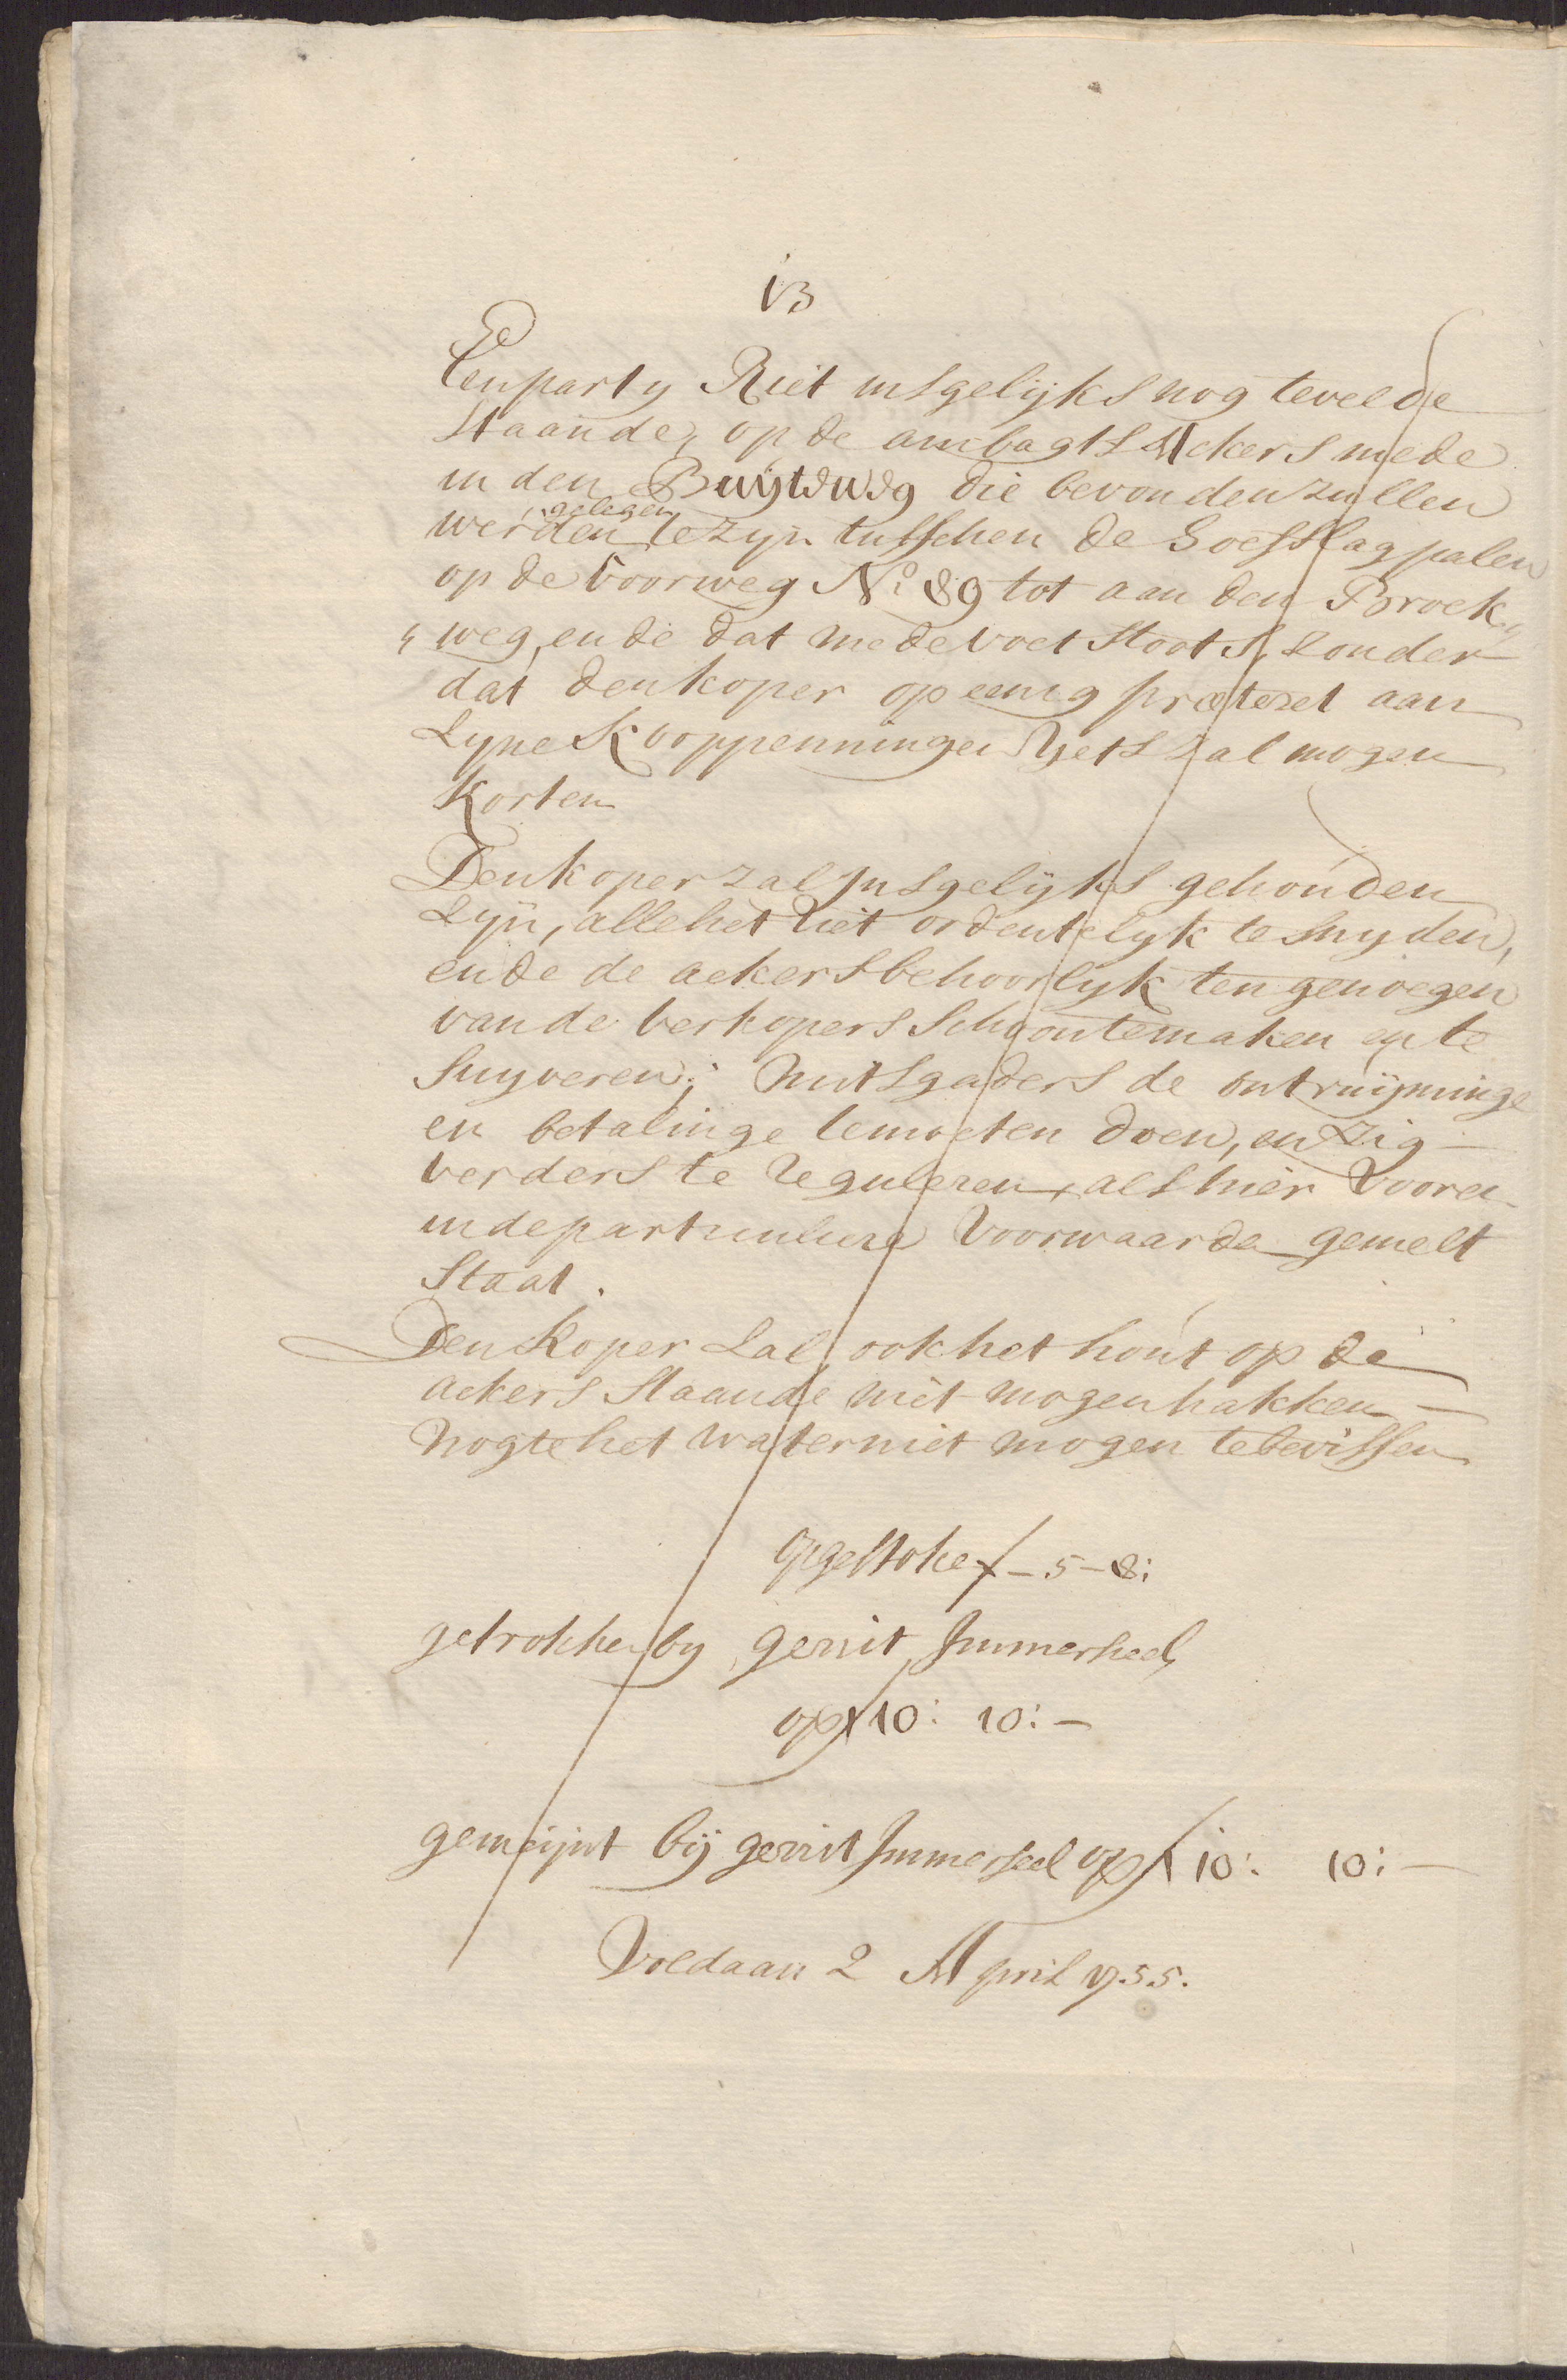 13
Een party Riet insgelijks nog te velde
staande, op de ambagts Ackers mede
in den Buijtdijg die bevonden zullen
gelegen
werden te zyn tusschen de Hoefslagpalen
op de voorweg No. 89 tot aan den Broek„
„weg, ende dat mede voet stoots, zonder
dat den koper op eenig prætext aan
zyne Kooppenningen Yets zal mogen
Korten
Den koper zal Insgelijks gehouden
zijn, alle het Riet ordentelyk te snyden,
ende de ackers behoorlyk ten genoegen
van de verkopers Schoon te maken en te
Suyveren; mitsgaders de ontruijminge
en betalinge te moeten doen, en zig
verders te reguleren, als hier vooren
in de particuliere Voorwaarde gemelt
Staat.
Den Koper zal ook het hout op de
ackers staande niet mogen hakken
nogte het water niet mogen te bevissen
opgestoke ƒ - 5 - 8:
getrokken by gerrit Immerseel
op ƒ 10: 10: -
gemeijnt bij gerrit Immerseel op ƒ 10: 10: -
Voldaan 2 April 1755.